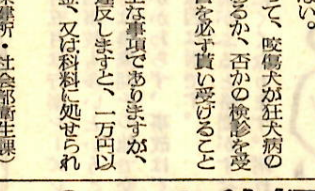 ない。
って、咬傷犬が狂犬病の
るか、否かの検診を受
を必ず貰い受けること
主な事項でありますが、
違反しますと、一万円以
金、又は科料に処せられ
業所・社会部衛生課)